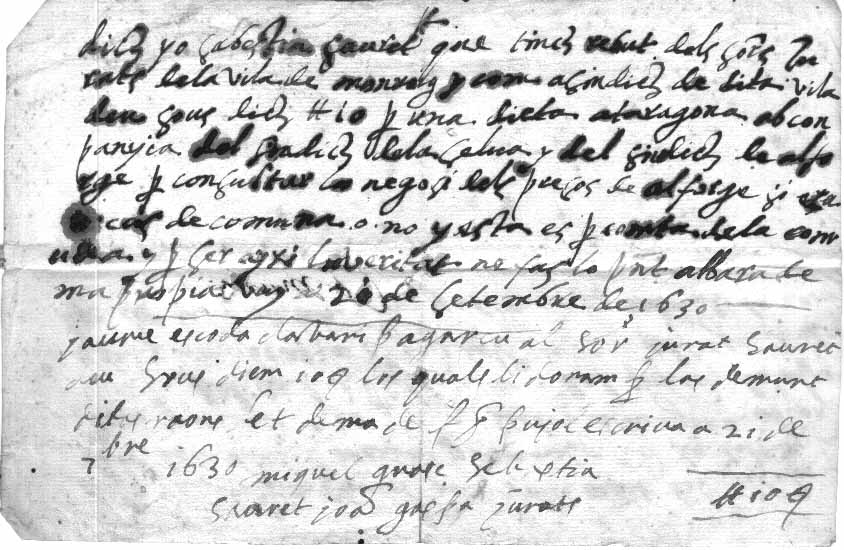 dich yo sabestia sauret que tinch rebut dels sors Ju
rats de la vila de monroy y com a sindich de dita vila
deu sous dich ++ 10 p una dieta a taragona ab con
panyia del sindich de la selva y del sindich de alfo
rge p consultar lo negosi dels presos de alforge si era
cas de comuna o no y esta es p conta de la com
una y p ser axi la veritat ne fas lo pnt albara de
ma propia vuy 20 de setembre de 1630
jaume escoda clavari pagareu al sor jurat sauret
deu sous diem 10 los quals li donam p las demunt
dites raons fet de ma de pujol escriva a 21 de
7bre 1630 miquel grase sebestia
sauret joa gassa jurats
++ 10